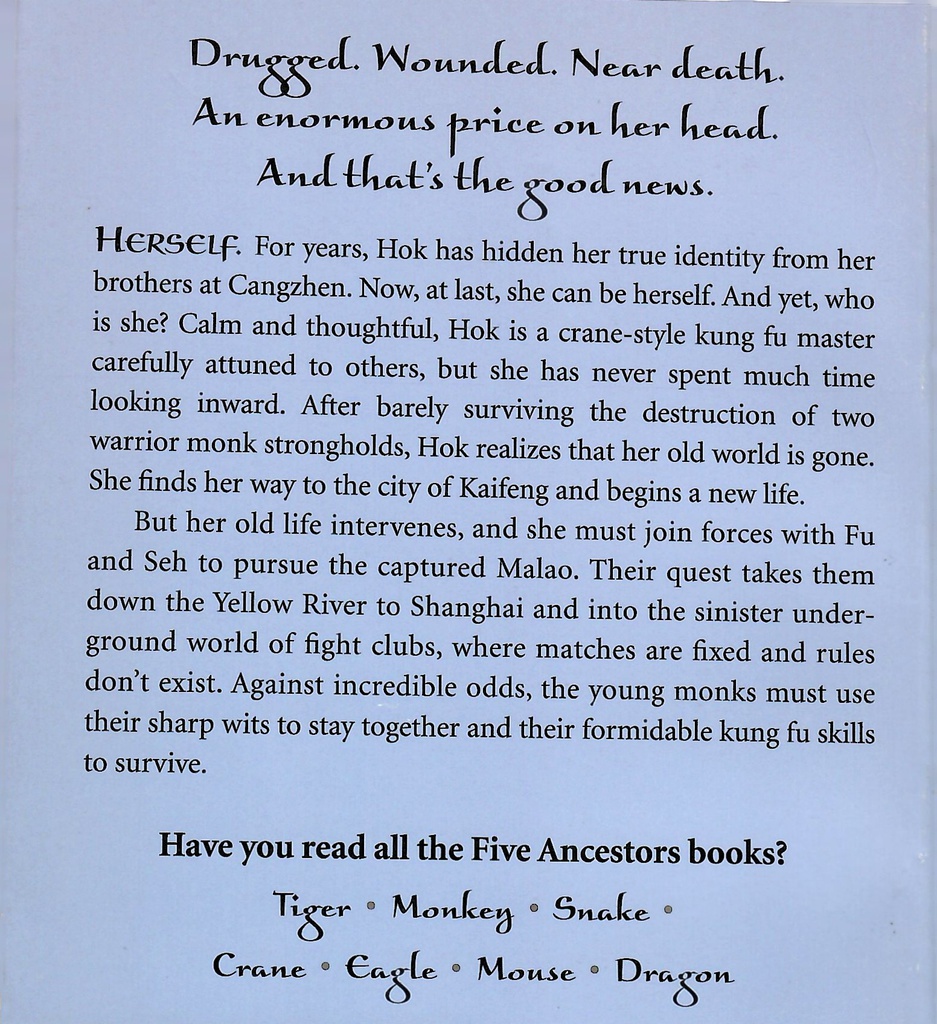 Drugged. Wounded. Near death.
An enormous price on her head.
And that's the good news.
HERSELF. For years, Hok has hidden her true identity from her
brothers at Cangzhen. Now, at last, she can be herself. And yet, who
is she? Calm and thoughtful, Hok is a crane-style kung fu master
carefully attuned to others, but she has never spent much time
looking inward. After barely surviving the destruction of two
warrior monk strongholds, Hok realizes that her old world is gone.
She finds her way to the city of Kaifeng and begins a new life.
But her old life intervenes, and she must join forces with Fu
and Seh to pursue the captured Malao. Their quest takes them
down the Yellow River to Shanghai and into the sinister under-
ground world of fight clubs, where matches are fixed and rules
don't exist. Against incredible odds, the young monks must use
their sharp wits to stay together and their formidable kung fu skills
to survive.
Have you read all the Five Ancestors books?
Tiger • Monkey • Snake •
Crane • Eagle • Mouse • Dragon